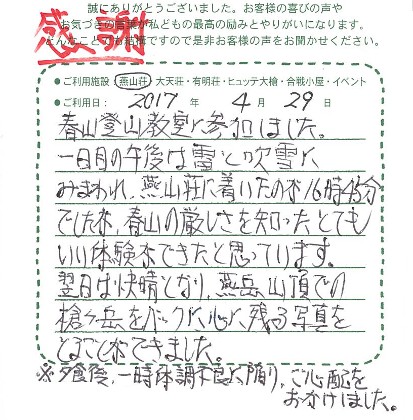 誠にありがとうございました。お客様の喜びの声や
お気づきの言葉が私どもの最高の励みとやりがいになります。
どんなことでも結構ですので是非お客様の声をお聞かせください。
感謝
●ご利用施設 燕山荘・大天荘・有明荘・ヒュッテ大槍・合戦小屋・イベント
●ご利用日: 2017年 4月 29日
春山登山教室に参加しました。
一日目の午後は雷と吹雪に
みまわれ、燕山荘に着いたのが16時45分
でしたが、春山の厳しさを知ったとても
いい体験ができたと思っています。
翌日は快晴となり、燕岳山頂での
槍ヶ岳をバックに心に残る写真を
とることができました。
※夕食後、一時体調不良に陥り、ご心配を
おかけしました。